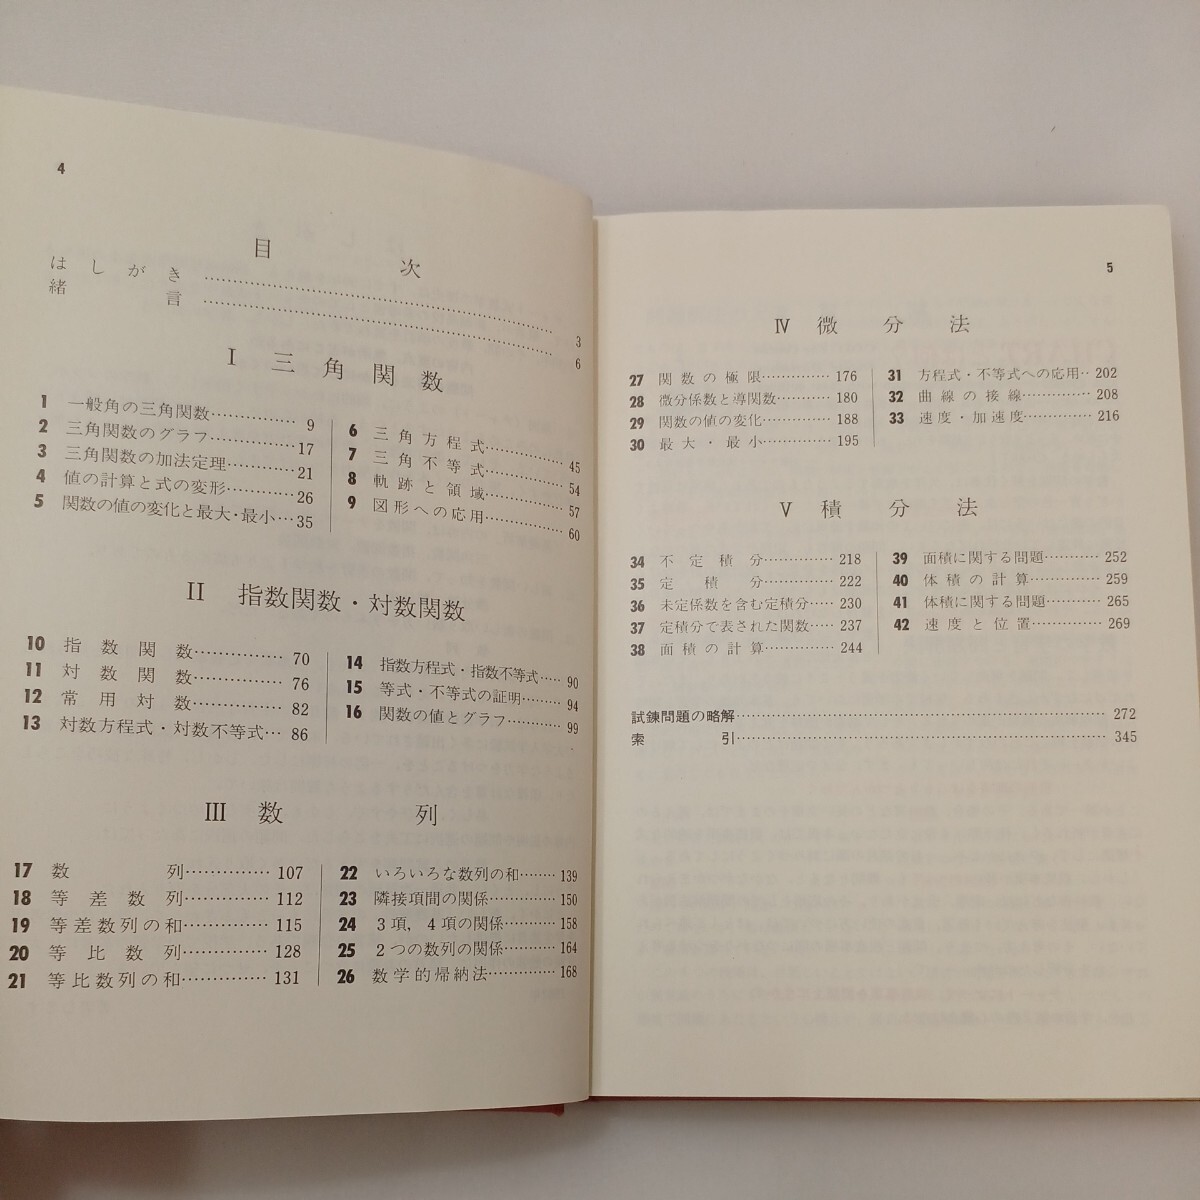 4
目次
はしがき…………3
緒言…………6
I 三角関数
1 一般角の三角関数…………9
2 三角関数のグラフ…………17
3 三角関数の加法定理…………21
4 値の計算と式の変形…………26
5 関数の値の変化と最大・最小…35
6 三角方程式…………45
7 三角不等式…………54
8 軌跡と領域…………57
9 図形への応用…………60
II 指数関数・対数関数
10 指数関数…………70
11 対数関数…………76
12 常用対数…………82
13 対数方程式・対数不等式…86
14 指数方程式・指数不等式……90
15 等式・不等式の証明………94
16 関数の値とグラフ…………99
III 数列
17 数列…………107
18 等差数列…………112
19 等差数列の和…………115
20 等比数列…………128
21 等比数列の和…………131
22 いろいろな数列の和………139
23 隣接項間の関係…………150
24 3項，4項の関係…………158
25 2つの数列の関係…………164
26 数学的帰納法…………168
5
IV 微分法
27 関数の極限…………176
28 微分係数と導関数…………180
29 関数の値の変化…………188
30 最大・最小…………195
31 方程式・不等式への応用…202
32 曲線の接線…………208
33 速度・加速度…………216
V 積分法
34 不定積分…………218
35 定積分…………222
36 未定係数を含む定積分……230
37 定積分で表された関数……237
38 面積の計算…………244
39 面積に関する問題…………252
40 体積の計算…………259
41 体積に関する問題…………265
42 速度と位置…………269
試錬問題の略解…………272
索引…………345